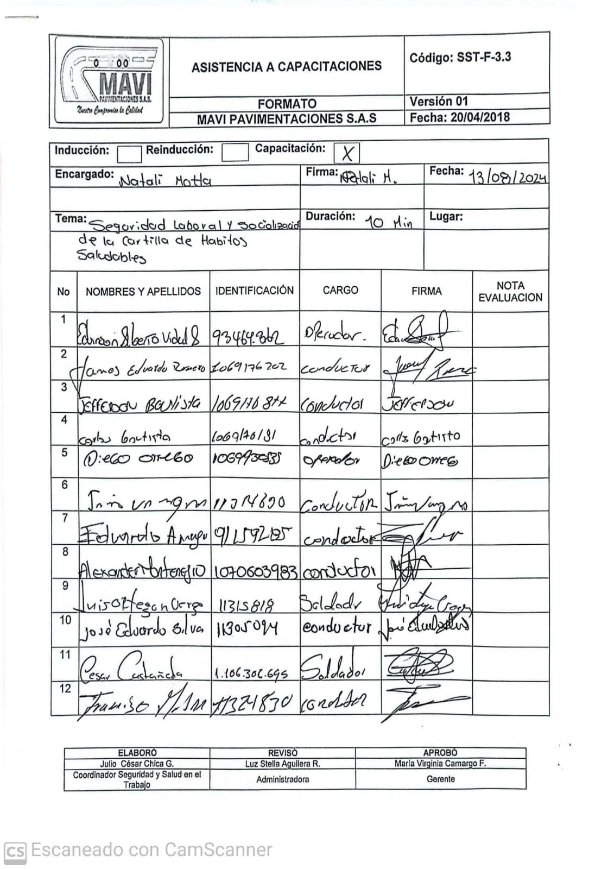 MAVI
PAVIMENTACIONES S.A.S.
Nuestro Compromiso la Calidad
ASISTENCIA A CAPACITACIONES
Código: SST-F-3.3
FORMATO
Versión 01
MAVI PAVIMENTACIONES S.A.S
Fecha: 20/04/2018
Inducción: Reinducción: Capacitación: X
Encargado: Natali Motta Firma: Natali M. Fecha: 13/08/2024
Tema: Seguridad Laboral y socialización Duración: 10 Min Lugar:
de la Cartilla de Habitos
Saludables
No NOMBRES Y APELLIDOS IDENTIFICACIÓN CARGO FIRMA NOTA EVALUACION
1 Alberto Vidal S Operador.
2 Eduardo 1069176202 conductor
3 Jefferson Bautista conductor Jefferson
4 Carlos Bautista conductor Carlos Bautista
5 Diego Orrego operador Diego Orrego
6 11314890 conductor
7 Eduardo conductor
8 Alexander 1070603983 conductor
9 Luis 11315818 Soldador
10 José Eduardo Silva 11305094 conductor José
11 Cesar Castañeda 1.106.306.695 Soldador
12 11324830
ELABORÓ REVISÓ APROBÓ
Julio César Chica G. Luz Stella Aguilera R. María Virginia Camargo F.
Coordinador Seguridad y Salud en el Trabajo Administradora Gerente
CS Escaneado con CamScanner